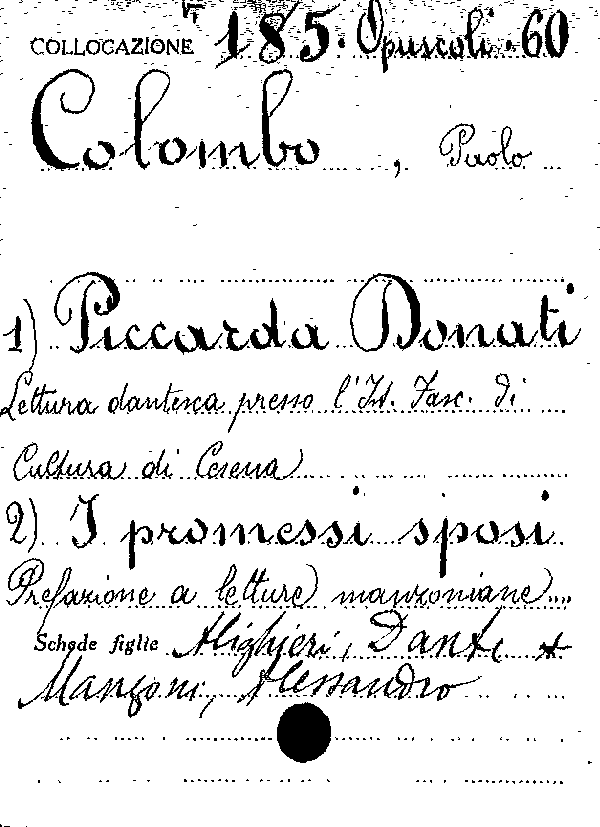 COLLOCAZIONE 185. Opuscoli. 60
Colombo, Paolo
1) Piccarda Donati
Lettura dantesca presso l'Ist. Fasc. di
Cultura di Cesena
2) I promessi sposi
Prefazione a letture manzoniane
Schede figlie Alighieri, Dante +
Manzoni, Alessandro